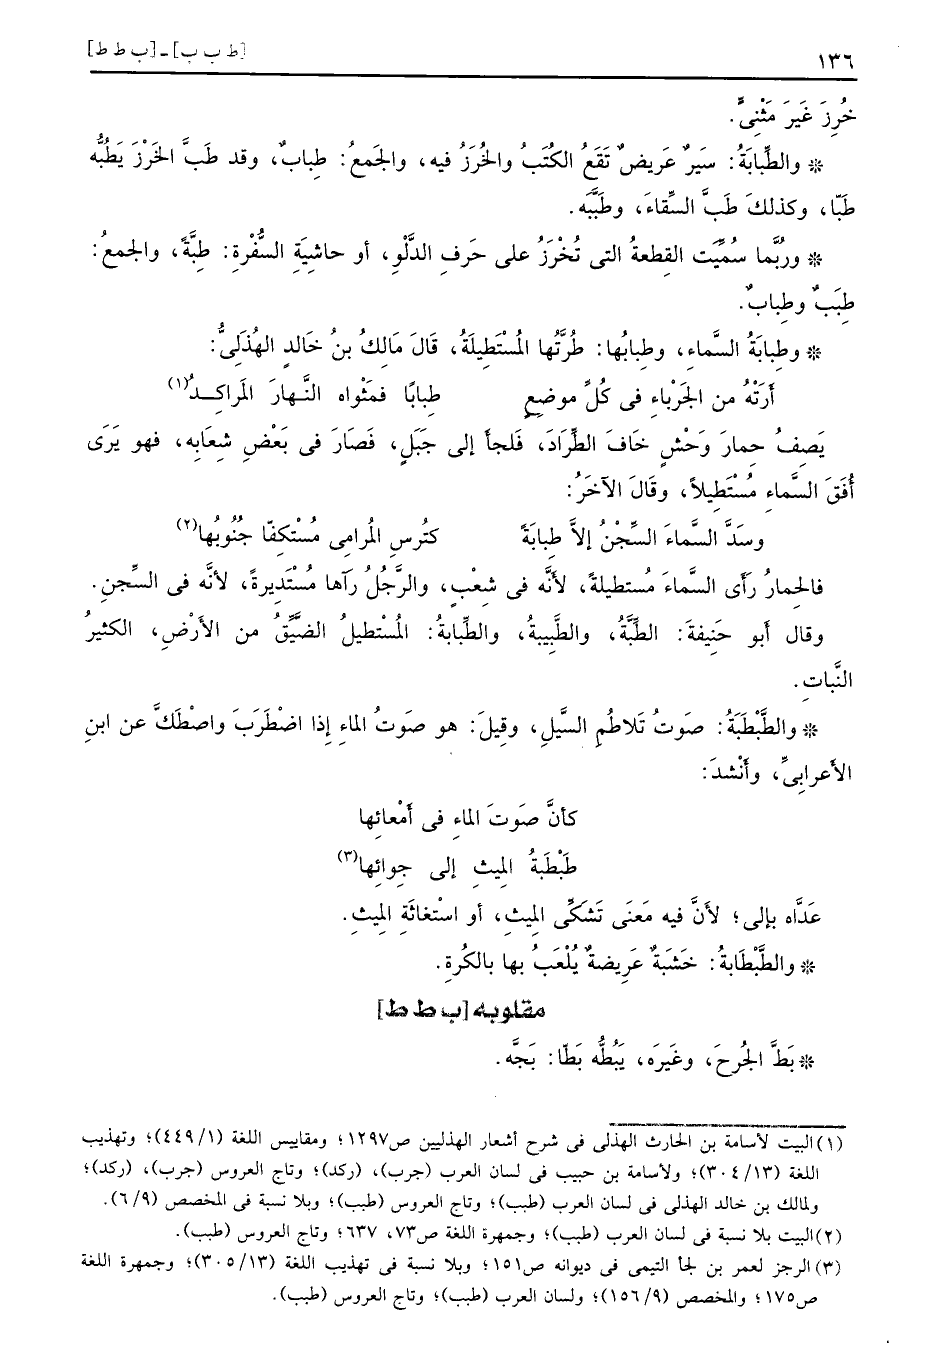 ١٣٦ [ط ب ب] ـ [ب ط ط]
خُرِزَ غَيرَ مَثْنِىٍّ.
* والطِّبابَةُ: سَيرٌ عَريضٌ تَقَعُ الكُتَبُ والخُرَزُ فيه، والجَمعُ: طِبابٌ، وقد طَبَّ الخَرْزَ يَطُبُّه
طَبّا، وكذلكَ طَبَّ السِّقاءَ، وطَبَّبَه.
* ورُبَّما سُمِّيَت القِطعةُ التى تُخْرَزُ على حَرفِ الدَّلْوِ، أو حاشيَةِ السُّفْرةِ: طِبَّةً، والجمعُ:
طِبَبٌ وطِبابٌ.
* وطِبابَةُ السَّماءِ، وطِبابُها: طُرَّتُها المُسْتَطِيلَةُ، قَالَ مَالِكُ بنُ خَالدٍ الهُذَلىُّ:
أرَتْهُ من الجَرْباءِ فى كُلِّ موضعٍ طِبابًا فمَثْواه النَّهارَ المَراكِدُ(١)
يَصِفُ حمارَ وَحْشٍ خَافَ الطِّرَادَ، فَلجأ إلى جَبَلٍ، فَصَارَ فى بَعْضِ شِعَابِه، فهو يَرَى
أُفَقَ السَّماءِ مُسْتَطِيلاً، وقَالَ الآخَرُ:
وسَدَّ السَّماءَ السِّجْنُ إلاَّ طِبابَةً كتُرسِ المُرامِى مُسْتكِفّا جُنُوبُها(٢)
فالحِمارُ رَأى السَّماءَ مُستطيلةً، لأنَّه فى شِعْبٍ، والرَّجُلُ رَآها مُسْتَديرةً، لأنَّه فى السِّجنِ.
وقال أبو حَنِيفةَ: الطِّبَّةُ، والطَّبِيبةُ، والطِّبابةُ: المُسْتطيلُ الضَّيِّقُ من الأرْضِ، الكثيرُ
النَّباتِ.
* والطَّبْطَبَةُ: صَوتُ تَلاطُمِ السيلِ، وقِيلَ: هو صَوتُ الماءِ إذا اضْطَرَبَ واصْطَكَّ عن ابنِ
الأعرابىِّ، وأنْشدَ:
كأنَّ صَوتَ الماءِ فى أمْعائِها
طَبْطَبةُ المِيثِ إلى جِوائِها(٣)
عَدَّاه بإلى؛ لأنَّ فيه مَعنَى تَشَكِّى المِيثِ، أو استْغاثَةِ المِيثِ.
* والطَّبْطَابةُ: خَشَبَةٌ عَرِيضةٌ يُلْعَبُ بها بالكُرةِ.
مقلوبه [ب ط ط]
* بَطَّ الجُرحَ، وغَيرَه، يَبُطُّه بَطّا: بَجَّه.
(١) البيت لأسامة بن الحارث الهذلى فى شرح أشعار الهذليين ص١٢٩٧؛ ومقاييس اللغة (١/٤٤٩)؛ وتهذيب
اللغة (١٣/٣٠٤)؛ ولأسامة بن حبيب فى لسان العرب (جرب)، (ركد)؛ وتاج العروس (جرب)، (ركد)؛
ولمالك بن خالد الهذلى فى لسان العرب (طبب)؛ وتاج العروس (طبب)؛ وبلا نسبة فى المخصص (٩/٦).
(٢) البيت بلا نسبة فى لسان العرب (طبب)؛ وجمهرة اللغة ص٧٣، ٦٣٧؛ وتاج العروس (طبب).
(٣) الرجز لعمر بن لجأ التيمى فى ديوانه ص١٥١؛ وبلا نسبة فى تهذيب اللغة (١٣/٣٠٥)؛ وجمهرة اللغة
ص١٧٥؛ والمخصص (٩/١٥٦)؛ ولسان العرب (طبب)؛ وتاج العروس (طبب).